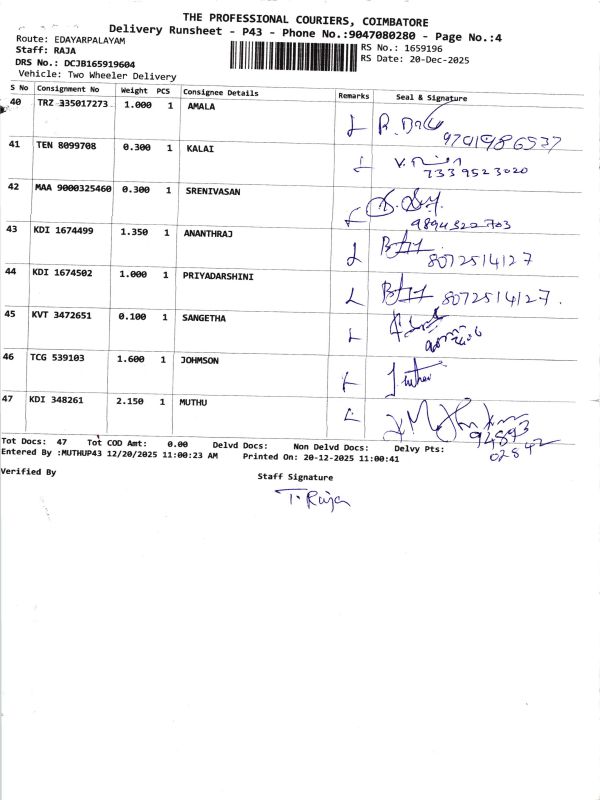 THE PROFESSIONAL COURIERS, COIMBATORE
Delivery Runsheet - P43 - Phone No.:9047080280 - Page No.:4
Route: EDAYARPALAYAM
Staff: RAJA
RS No.: 1659196
DRS No.: DCJB165919604
RS Date: 20-Dec-2025
Vehicle: Two Wheeler Delivery
S No Consignment No Weight PCS Consignee Details Remarks Seal & Signature
40 TRZ 335017273 1.000 1 AMALA
41 TEN 8099708 0.300 1 KALAI
7339523020
42 MAA 9000325460 0.300 1 SRENIVASAN
9894322703
43 KDI 1674499 1.350 1 ANANTHRAJ
8072514127
44 KDI 1674502 1.000 1 PRIYADARSHINI
8072514127.
45 KVT 3472651 0.100 1 SANGETHA
46 TCG 539103 1.600 1 JOHMSON
47 KDI 348261 2.150 1 MUTHU
94893
02842
Tot Docs: 47 Tot COD Amt: 0.00 Delvd Docs: Non Delvd Docs: Delvy Pts:
Entered By :MUTHUP43 12/20/2025 11:00:23 AM Printed On: 20-12-2025 11:00:41
Verified By
Staff Signature
T. Raja